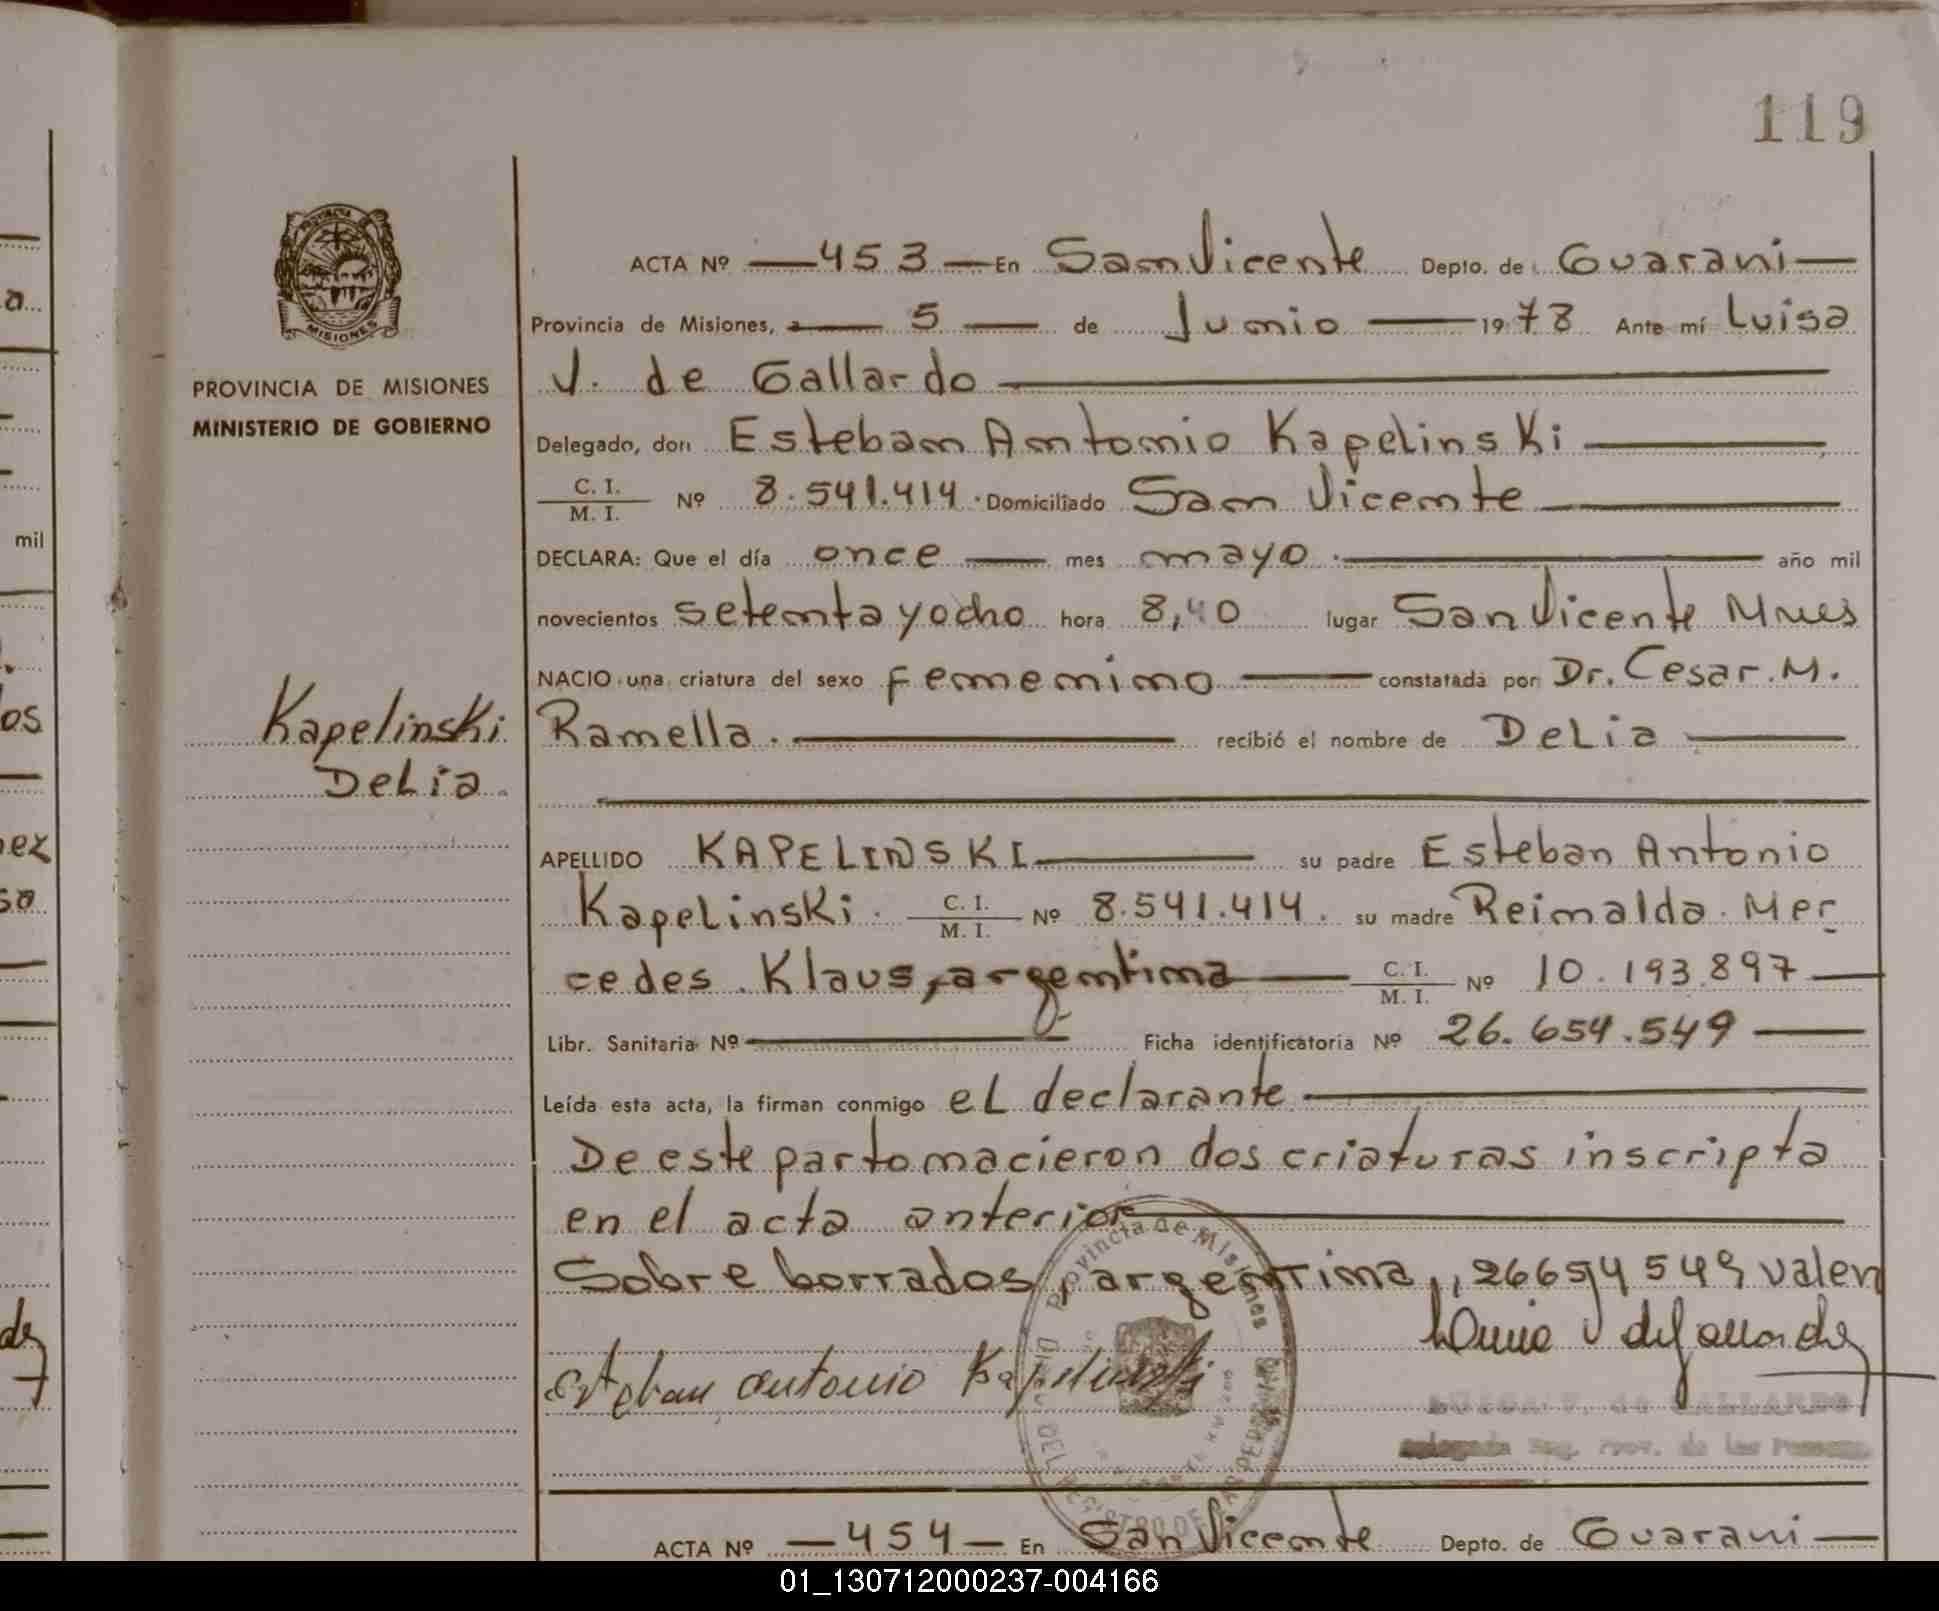 119
PROVINCIA DE MISIONES
MISIONES
PROVINCIA DE MISIONES
MINISTERIO DE GOBIERNO
Kapelinski
Delia
ACTA Nº 453 En San Vicente Depto. de Guarani
Provincia de Misiones, a 5 de Junio 1978 Ante mí Luisa
V. de Gallardo
Delegado, don Esteban Antonio Kapelinski
C. I.
M. I. Nº 8.541.414. Domiciliado San Vicente
DECLARA: Que el día once mes mayo. año mil
novecientos setenta y ocho hora 8,40 lugar San Vicente Mnes
NACIO una criatura del sexo femenino constatada por Dr. Cesar. M.
Ramella. recibió el nombre de Delia
APELLIDO KAPELINSKI su padre Esteban Antonio
Kapelinski. C. I.
M. I. Nº 8.541.414. su madre Reinalda. Mer
cedes. Klaus, argentina C. I.
M. I. Nº 10.193.897
Libr. Sanitaria Nº Ficha identificatoria Nº 26.654.549
Leída esta acta, la firman conmigo el declarante
De este parto nacieron dos criaturas inscripta
en el acta anterior
Sobre borrados, argentina,, 26654549 valen
Esteban Antonio Kapelinski
Luisa V de Gallardo
LUISA V. de GALLARDO
Delegada Reg. Prov. de las Personas
Provincia de Misiones
ACTA Nº 454 En San Vicente Depto. de Guarani
mil
01_130712000237-004166